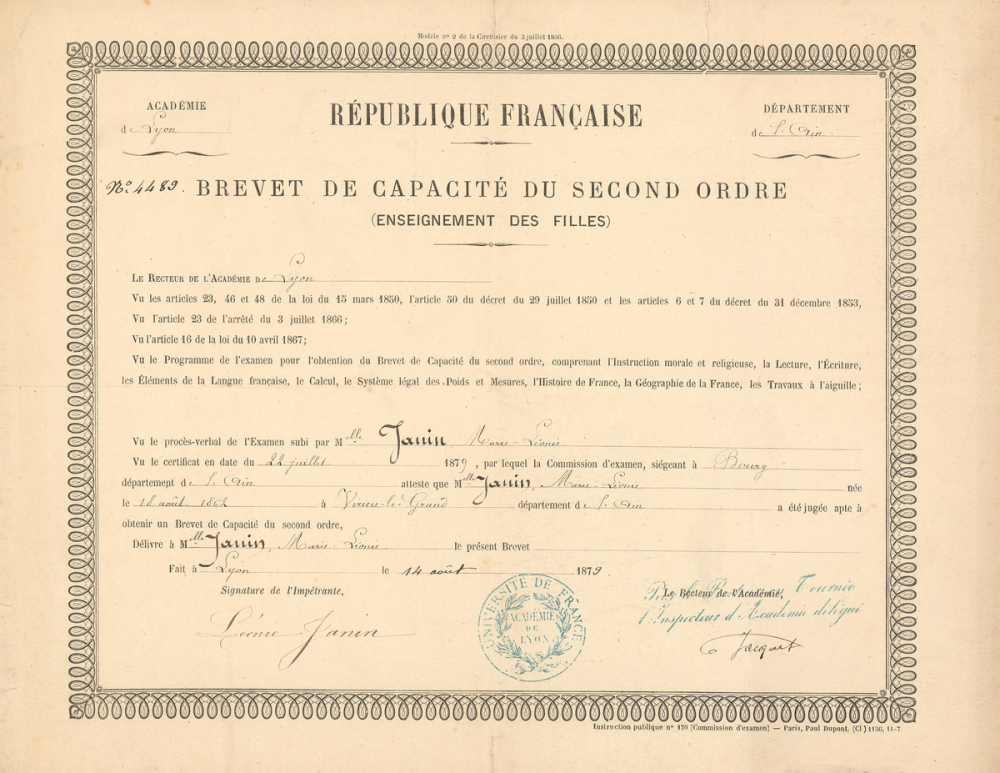 Modèle nº 2 de la Circulaire du 3 juillet 1866.
ACADÉMIE
de Lyon
RÉPUBLIQUE FRANÇAISE
DÉPARTEMENT
de l'Ain
Nº 4489. BREVET DE CAPACITÉ DU SECOND ORDRE
(ENSEIGNEMENT DES FILLES)
LE RECTEUR DE L'ACADÉMIE DE Lyon
Vu les articles 23, 46 et 48 de la loi du 15 mars 1850, l'article 50 du décret du 29 juillet 1850 et les articles 6 et 7 du décret du 31 décembre 1853,
Vu l'article 23 de l'arrêté du 3 juillet 1866;
Vu l'article 16 de la loi du 10 avril 1867;
Vu le Programme de l'examen pour l'obtention du Brevet de Capacité du second ordre, comprenant l'Instruction morale et religieuse, la Lecture, l'Écriture,
les Éléments de la Langue française, le Calcul, le Système légal des Poids et Mesures, l'Histoire de France, la Géographie de la France, les Travaux à l'aiguille;
Vu le procès-verbal de l'Examen subi par Mlle Janin, Marie-Léonie
Vu le certificat en date du 22 juillet 1879, par lequel la Commission d'examen, siégeant à Bourg
département de l'Ain atteste que Mlle Janin, Marie-Léonie née
le 18 août 1862 à Virieu-le-Grand département de l'Ain a été jugée apte à
obtenir un Brevet de Capacité du second ordre,
Délivre à Mlle Janin, Marie-Léonie le présent Brevet
Fait à Lyon le 14 août 1879
Signature de l'Impétrante,
Léonie Janin
UNIVERSITÉ DE FRANCE
ACADÉMIE
DE
LYON
Le Recteur de l'Académie,
l'Inspecteur d'Académie délégué
Jacquet
Instruction publique nº 170 (Commission d'examen) — Paris, Paul Dupont. (Cl) 1136, 11-7.